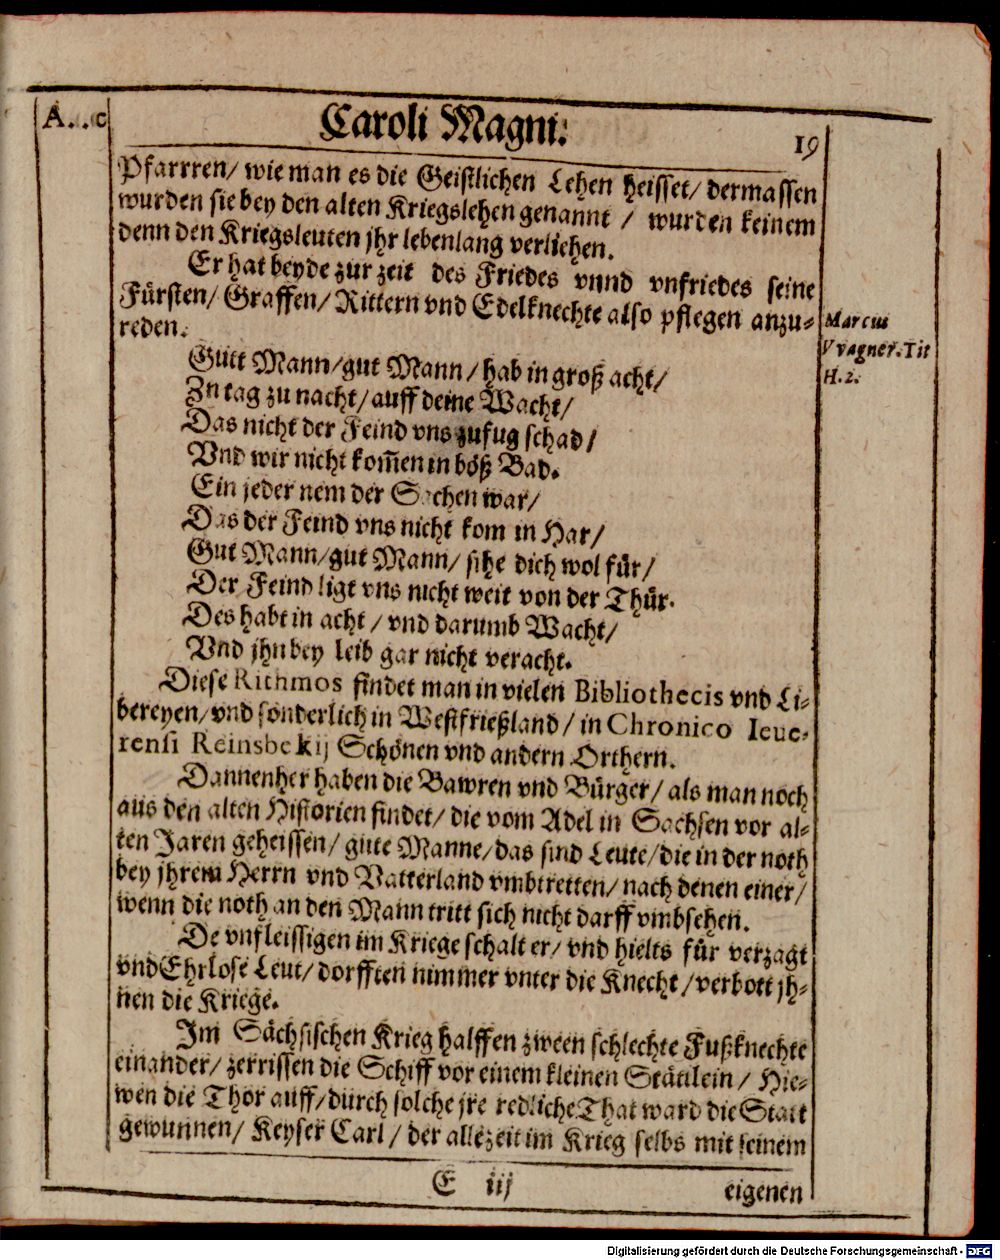 A..c
Caroli Magni.
19
Pfarrren/ wie man es die Geistlichen Lehen heisset/ dermassen
wurden sie bey den alten Kriegslehen genannt / wurden keinem
denn den Kriegsleuten jhr lebenlang verliehen.
Er hat beyde zur zeit des Friedes vnnd vnfriedes seine
Fürsten/ Graffen/ Rittern vnd Edelknechte also pflegen anzu⸗
reden.
Marcus
VVagner. Tit
H. 2.
Gutt Mann/gut Mann/ hab in groß acht/
Zn tag zu nacht/ auff deine Wacht/
Das nicht der Feind vns zufug schad/
Vnd wir nicht kom̃en in böß Bad.
Ein jeder nem der Sachen war/
Das der Feind vns nicht kom in Har/
Gut Mann/gut Mann/ sihe dich wol für/
Der Feind ligt vns nicht weit von der Thür.
Des habt in acht / vnd darumb Wacht/
Vnd jhn bey leib gar nicht veracht.
Diese Rithmos findet man in vielen Bibliothecis vnd Li⸗
bereyen/ vnd sonderlich in Westfrießland/ in Chronico Ieue⸗
rensi Reinsbekij Schönen vnd andern Orthern.
Dannenher haben die Bawren vnd Bürger/ als man noch
aus den alten Historien findet/ die vom Adel in Sachsen vor al⸗
ten Jaren geheissen/ gute Manne/ das sind Leute/ die in der noth
bey jhrem Herrn vnd Vatterland vmbtretten/ nach denen einer/
wenn die noth an den Mann tritt sich nicht darff vmbsehen.
De vnfleissigen im Kriege schalt er/ vnd hielts für verzagt
vnd Ehrlose Leut/ dorfften nimmer vnter die Knecht/ verbott jh⸗
nen die Kriege.
Im Sächsischen Krieg halffen zween schlechte Fußknechte
einander/ zerrissen die Schiff vor einem kleinen Stätilein/ Hie⸗
wen die Thor auff/ durch solche jre redliche That ward die Statt
gewunnen/ Keyser Carl/ der allezeit im Krieg selbs mit seinem
E iij
eigenen
Digitalisierung gefördert durch die Deutsche Forschungsgemeinschaft - DFG